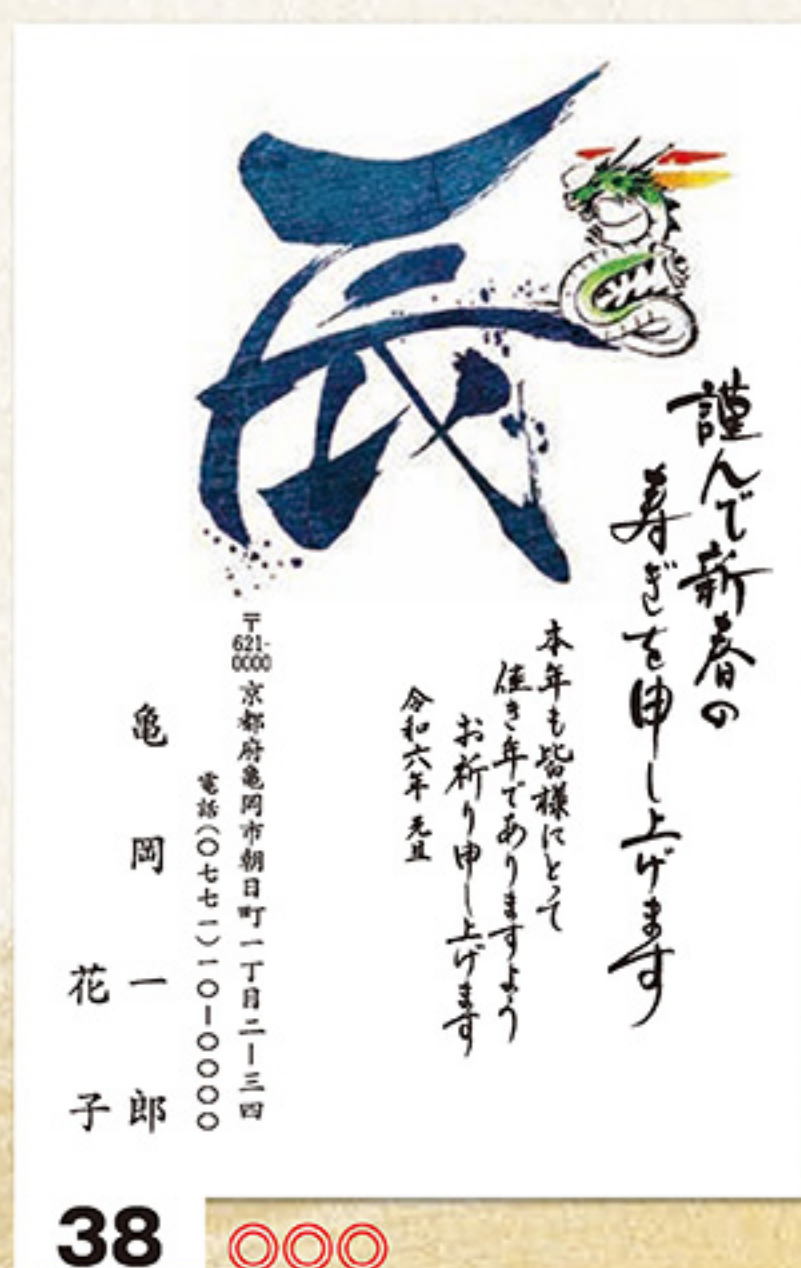 辰
謹んで新春の
寿ぎを申し上げます
本年も皆様にとって
佳き年でありますよう
お祈り申し上げます
令和六年 元旦
〒621-0000 京都府亀岡市朝日町一丁目二ー三四
電話(〇七七一)一〇ー〇〇〇〇
亀岡 一郎
花子
38 ◎◎◎